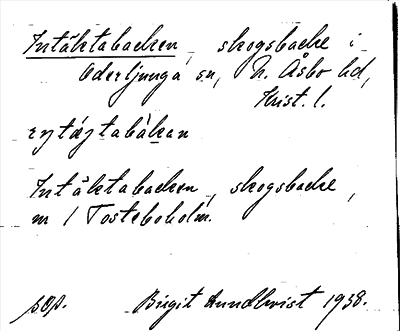 Intäktabacken, skogsbacke i
Oderljunga sn, N. Åsbo hd,
Krist. l.
Intäktabacken, skogsbacke,
m / Tosteboholm.
sop. Birgit Lundkvist 1938.